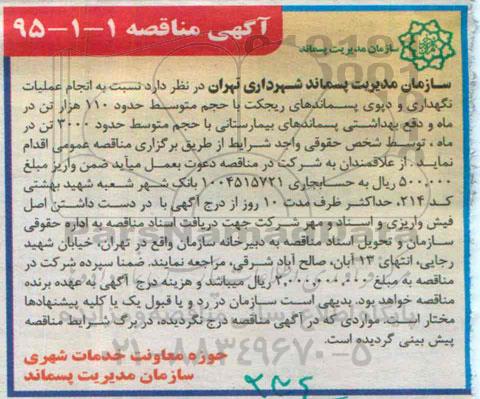 آگهی مناقصه ۱-۱-۹۵
سازمان مدیریت پسماند
سازمان مدیریت پسماند شهرداری تهران در نظر دارد نسبت به انجام عملیات
نگهداری و دپوی پسماندهای ریجکت با حجم متوسط حدود ۱۱۰ هزار تن در
ماه و دفع بهداشتی پسماندهای بیمارستانی با حجم متوسط حدود ۳۰۰۰ تن در
ماه، توسط شخص حقوقی واجد شرایط از طریق برگزاری مناقصه عمومی اقدام
نماید. از علاقمندان به شرکت در مناقصه دعوت بعمل میآید ضمن واریز مبلغ
۵۰۰.۰۰۰ ریال به حسابجاری ۱۰۰۴۵۱۵۷۲۱ بانک شهر شعبه شهید بهشتی
کد ۲۱۴، حداکثر ظرف مدت ۱۰ روز از درج آگهی با در دست داشتن اصل
فیش واریزی و اسناد و مهر شرکت جهت دریافت اسناد مناقصه به اداره حقوقی
سازمان و تحویل اسناد مناقصه به دبیرخانه سازمان واقع در تهران، خیابان شهید
رجایی، انتهای ۱۳ آبان، صالح آباد شرقی، مراجعه نمایند. ضمنا سپرده شرکت در
مناقصه به مبلغ ریال میباشد و هزینه درج آگهی به عهده برنده
مناقصه خواهد بود. بدیهی است سازمان در رد و یا قبول یک یا کلیه پیشنهادها
مختار است. مواردی که در آگهی مناقصه درج نگردیده، در برگ شرایط مناقصه
پیش بینی گردیده است.
حوزه معاونت خدمات شهری
سازمان مدیریت پسماند
۰۲۱-۸۸۳۴۹۶۷۰-۵